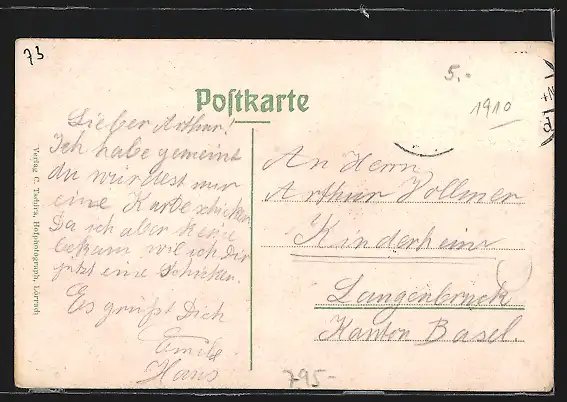 73
5.-
1910
Postkarte
Lieber Arthur!
Ich habe gemeint
du würdest mir
eine Karte schicken
Da ich aber keine
bekam will ich Dir
jetzt eine Schicken.
Es grüßt Dich
Emil
Hans
An Herrn
Arthur Vollmer
Kinderheim
Langenbruck
Kanton Basel.
Verlag C. Tschira, Hofphotograph, Lörrach
795-